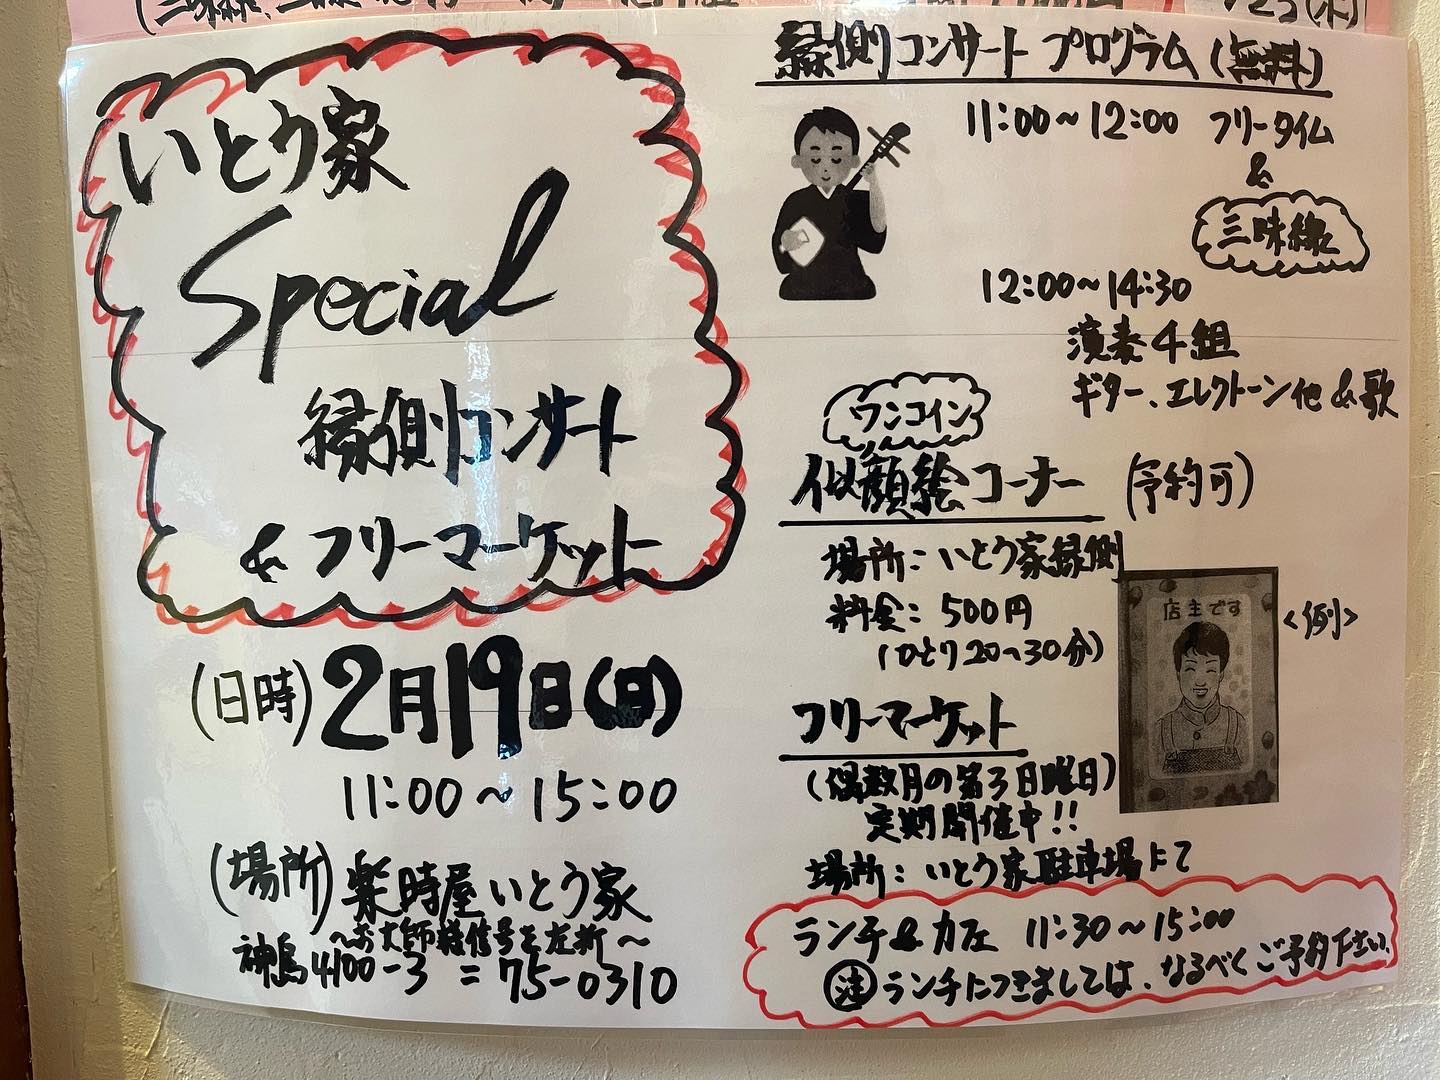 いとう家
Special
縁側コンサート
&フリーマーケット
(日時) 2月19日(日)
11:00～15:00
(場所) 楽時屋いとう家
～お大師様信号を左折～
神島4100-3 =75-0310
縁側コンサート プログラム (無料)
11:00～12:00 フリータイム
&
三味線
12:00～14:30
演奏4組
ギター、エレクトーン他&歌
ワンコイン
似顔絵コーナー (予約可)
場所:いとう家縁側
料金:500円
(ひとり20～30分)
店主です
<例>
フリーマーケット
(偶数月の第3日曜日)
定期開催中!!
場所:いとう家駐車場にて
ランチ&カフェ 11:30～15:00
注 ランチにつきましては、なるべくご予約下さい。